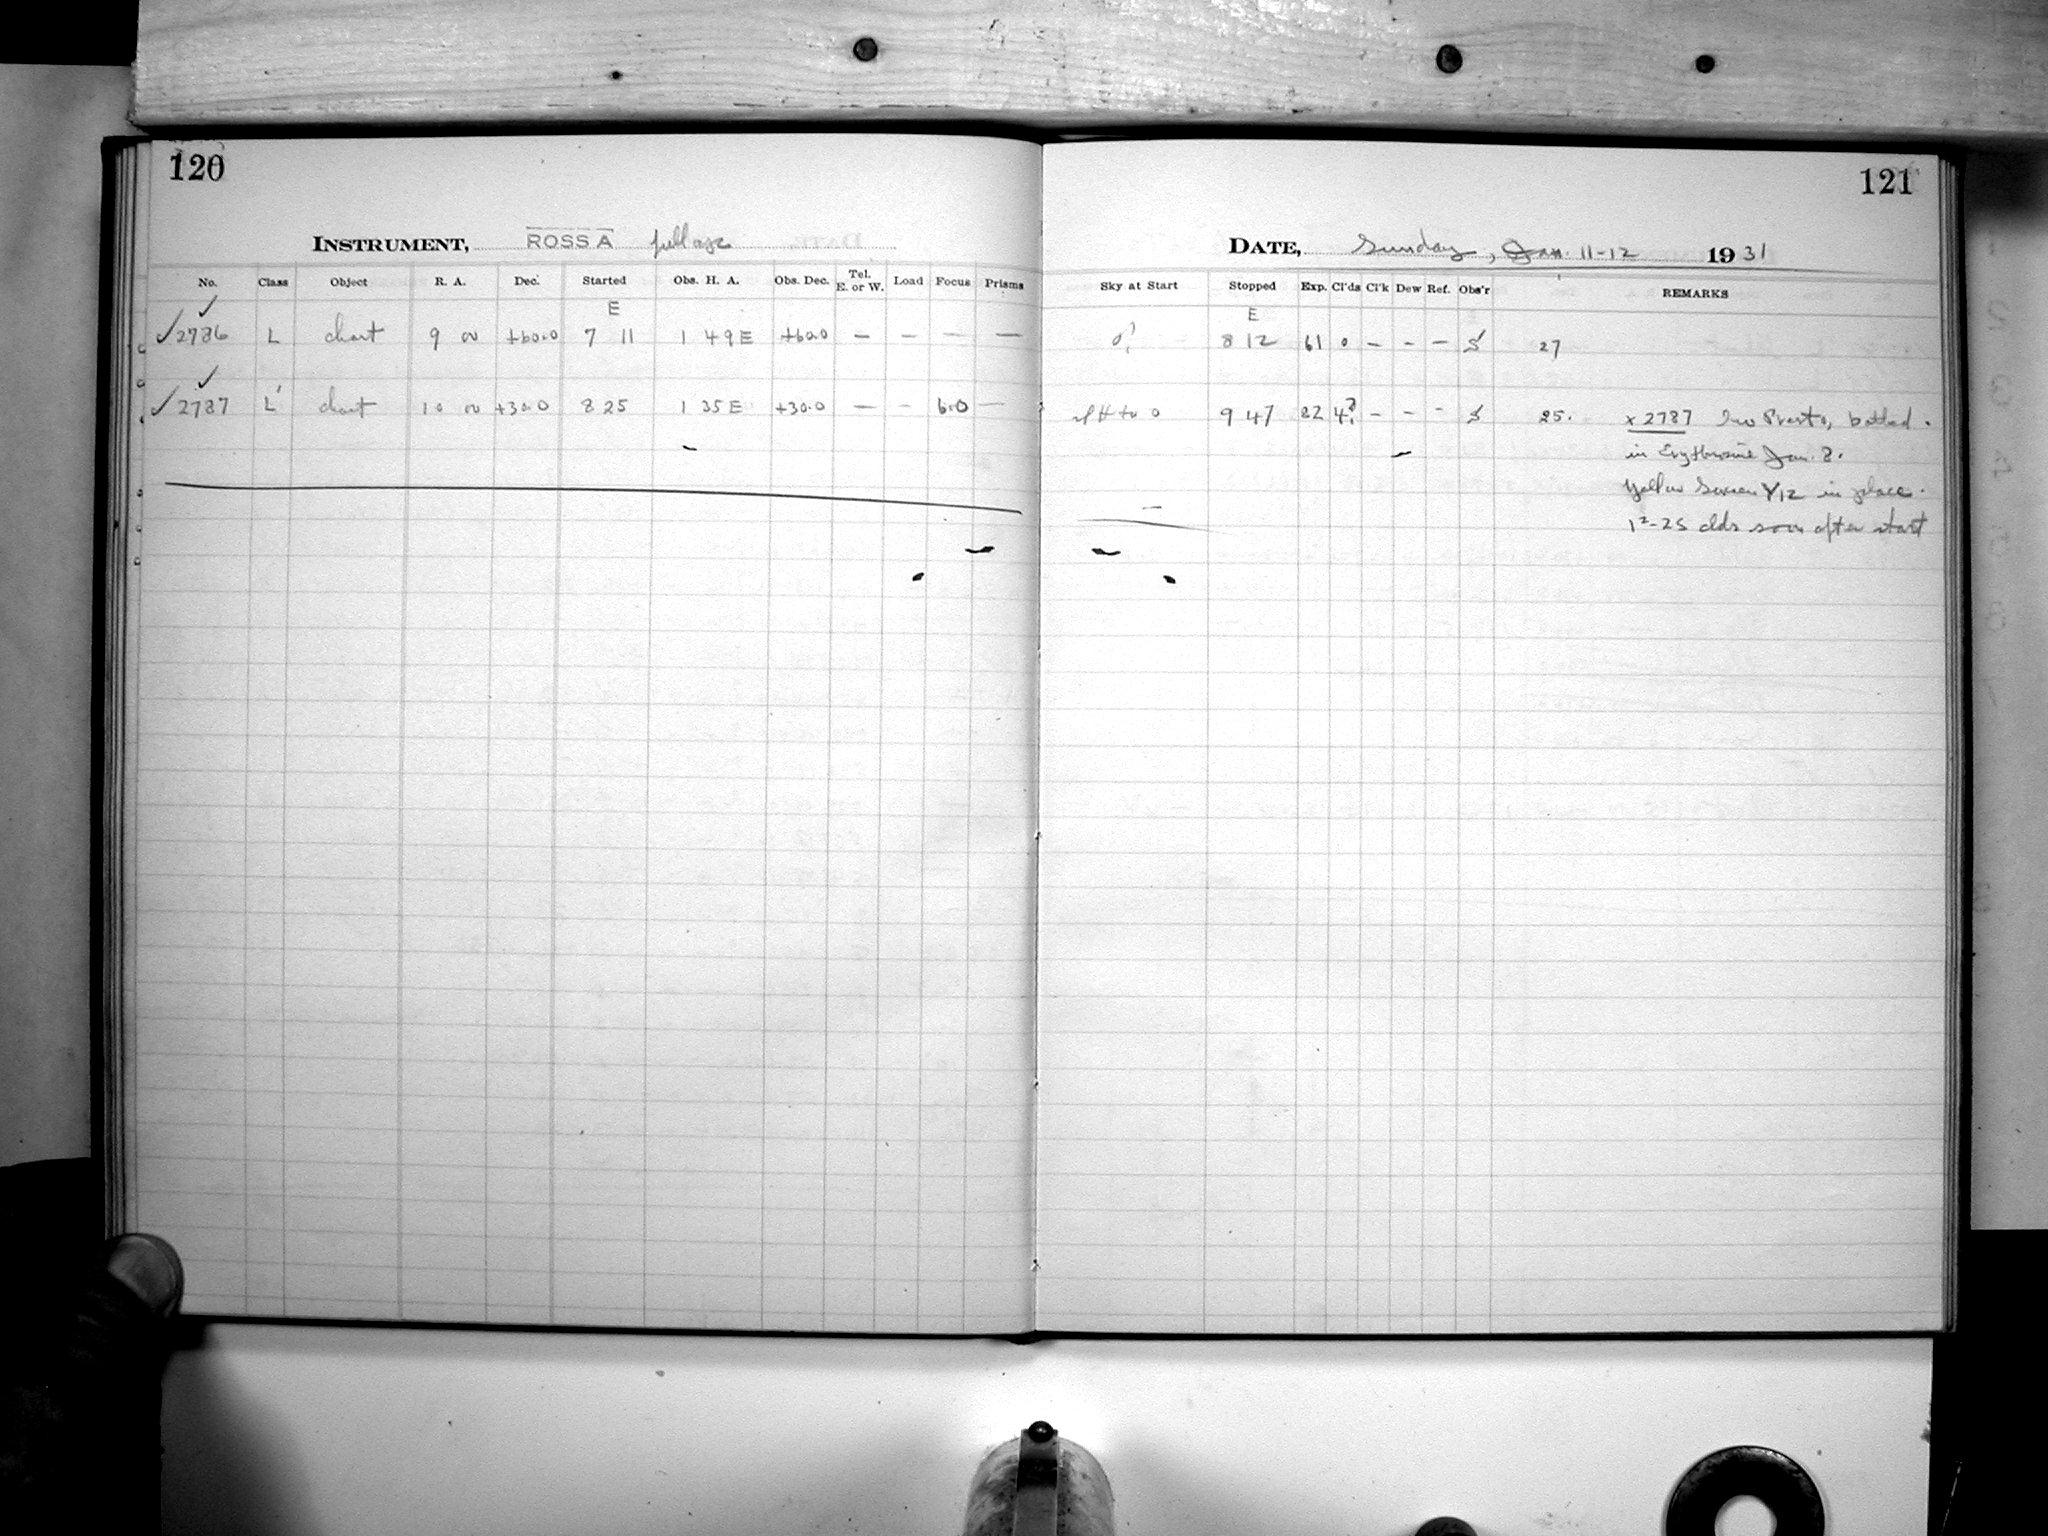 120
INSTRUMENT, ROSS A full age
No. Class Object R. A. Dec. Started Obs. H. A. Obs. Dec. Tel. E. or W. Load Focus Prisms
E
✓2786 L chart 9 00 +60.0 7 11 1 49 E +60.0 — — — —
✓2787 L chart 10 00 +30.0 8 25 1 35 E +30.0 — — 6.0 —
121
DATE, Sunday, Jan. 11-12 1931
Sky at Start Stopped Exp. Cl'ds Cl'k Dew Ref. Obs'r REMARKS
E
0? 8 12 61 0 — — — S 27
to 0 9 47 82 4? — — — S 25. x 2787 bathed.
in Erythrosine Jan. 8.
Yellow Screen Y12 in place.
clds soon after start